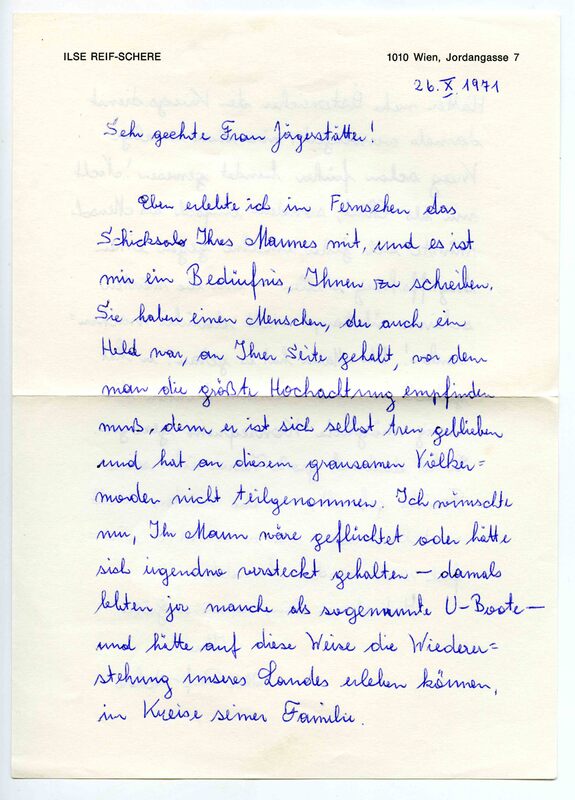 ILSE REIF-SCHERE
1010 Wien, Jordangasse 7
26.X.1971
Sehr geehrte Frau Jägerstätter!
Eben erlebte ich im Fernsehen das
Schicksals Ihres Mannes mit, und es ist
mir ein Bedürfnis, Ihnen zu schreiben.
Sie haben einen Menschen, der auch ein
Held war, an Ihrer Seite gehabt, vor dem
man die größte Hochachtung empfinden
muß, denn er ist sich selbst treu geblieben
und hat an diesem grausamen Völker=
morden nicht teilgenommen. Ich wünschte
nur, Ihr Mann wäre geflüchtet oder hätte
sich irgendwo versteckt gehalten – damals
lebten ja manche als sogenannte U-Boote –
und hätte auf diese Weise die Wiederer=
stehung unseres Landes erleben können,
im Kreise seiner Familie.